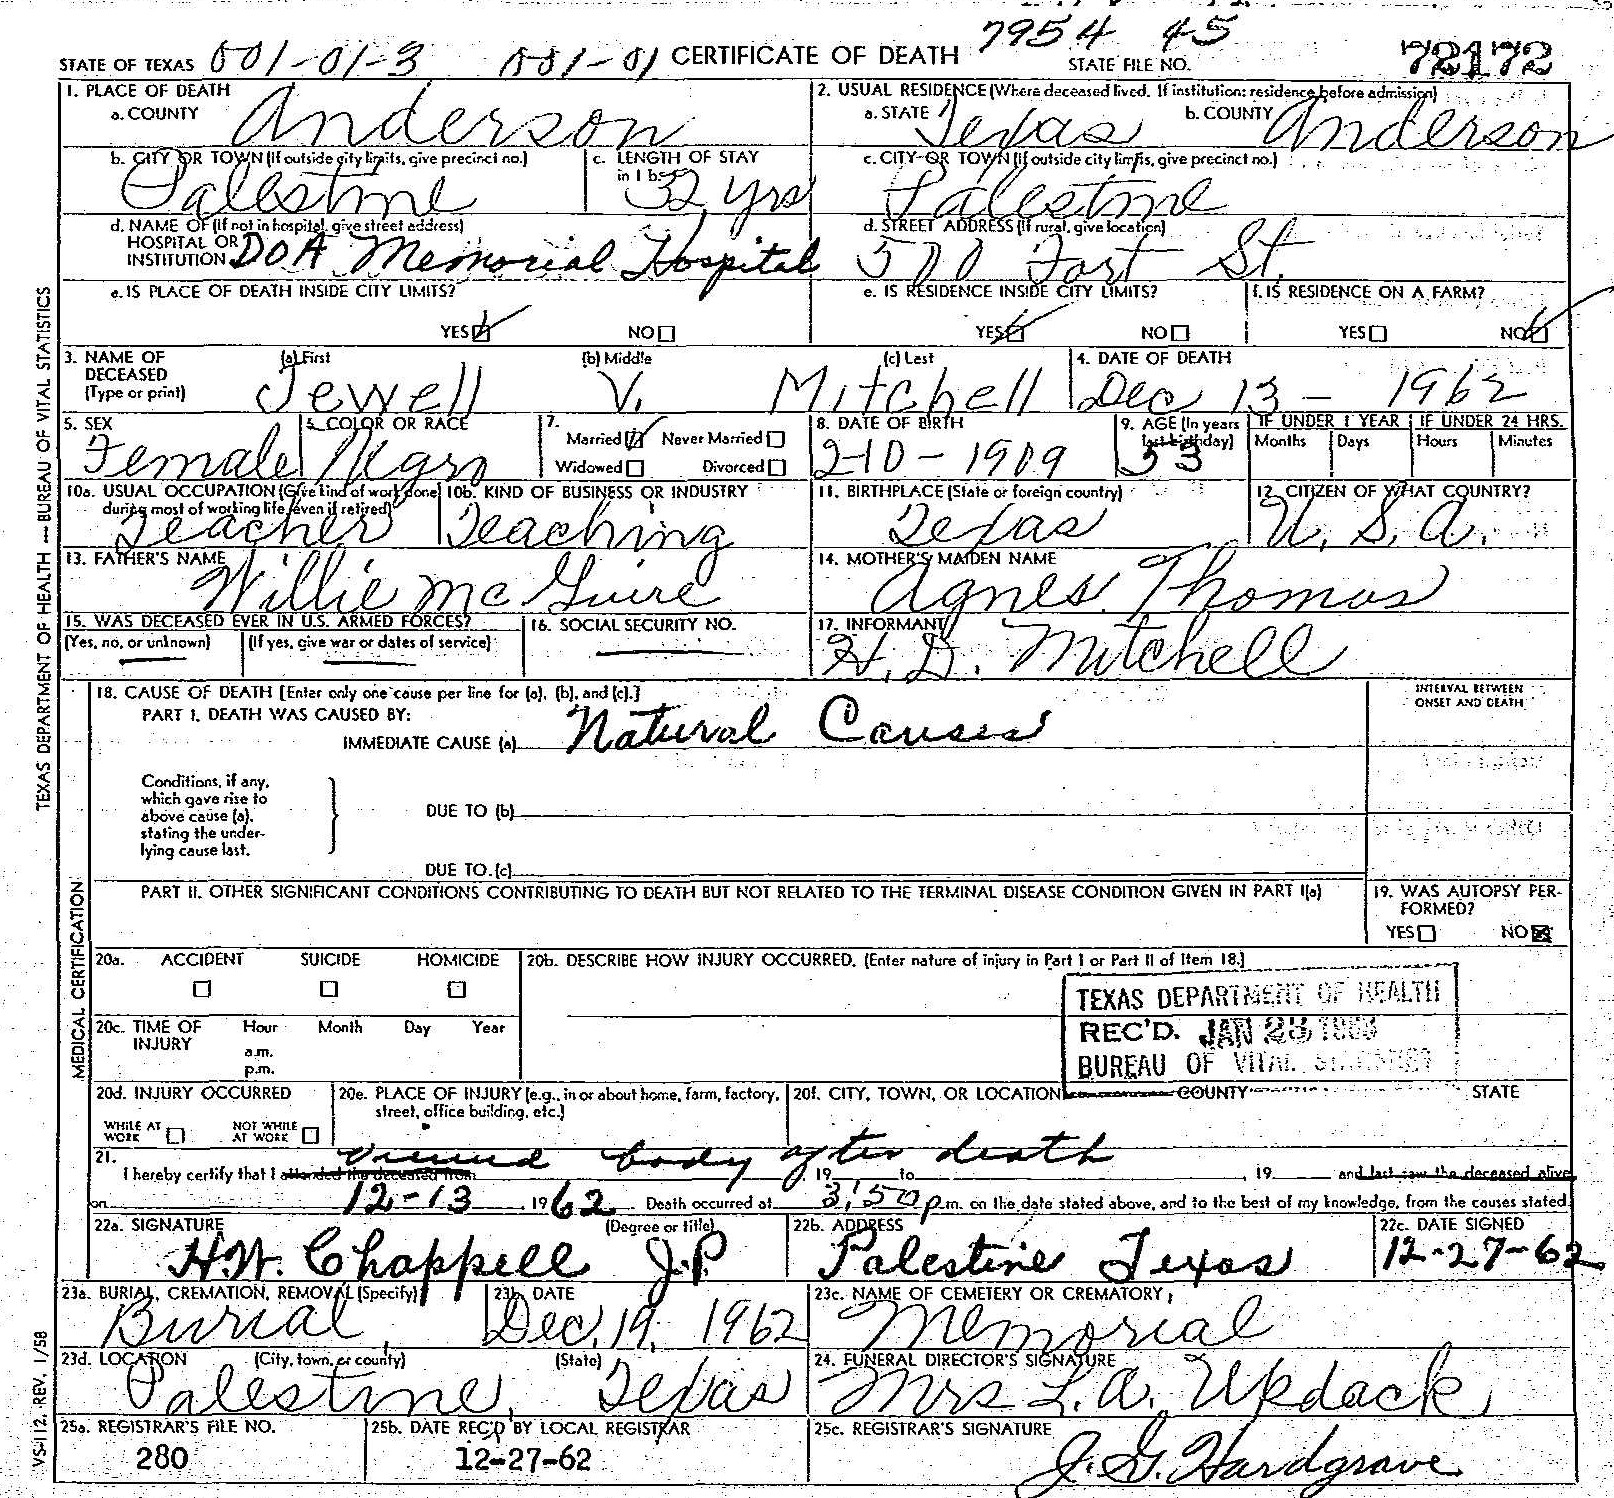 7954 45
STATE OF TEXAS 001-01-3 001-01 CERTIFICATE OF DEATH STATE FILE NO. 72172
1. PLACE OF DEATH
a. COUNTY Anderson
2. USUAL RESIDENCE (Where deceased lived. If institution: residence before admission)
a. STATE Texas b. COUNTY Anderson
b. CITY OR TOWN (If outside city limits, give precinct no.)
Palestine
c. LENGTH OF STAY
in 1 b. 32 yrs
c. CITY OR TOWN (If outside city limits, give precinct no.)
Palestine
d. NAME OF (If not in hospital, give street address)
HOSPITAL OR
INSTITUTION DOA Memorial Hospital
d. STREET ADDRESS (If rural, give location)
500 Fort St.
e. IS PLACE OF DEATH INSIDE CITY LIMITS?
YES NO
e. IS RESIDENCE INSIDE CITY LIMITS?
YES NO
f. IS RESIDENCE ON A FARM?
YES NO
3. NAME OF
DECEASED
(Type or print)
(a) First (b) Middle (c) Last
Jewell V. Mitchell
4. DATE OF DEATH
Dec 13 - 1962
5. SEX
Female
6. COLOR OR RACE
Negro
7.
Married Never Married
Widowed Divorced
8. DATE OF BIRTH
2-10-1909
9. AGE (In years
last birthday)
53
IF UNDER 1 YEAR IF UNDER 24 HRS.
Months Days Hours Minutes
10a. USUAL OCCUPATION (Give kind of work done
during most of working life, even if retired)
Teacher
10b. KIND OF BUSINESS OR INDUSTRY
Teaching
11. BIRTHPLACE (State or foreign country)
Texas
12. CITIZEN OF WHAT COUNTRY?
U. S. A.
13. FATHER'S NAME
Willie McGuire
14. MOTHER'S MAIDEN NAME
Agnes Thomas
15. WAS DECEASED EVER IN U.S. ARMED FORCES?
(Yes, no, or unknown) (If yes, give war or dates of service)
16. SOCIAL SECURITY NO.
17. INFORMANT
H. D. Mitchell
18. CAUSE OF DEATH [Enter only one cause per line for (a), (b), and (c).]
PART I. DEATH WAS CAUSED BY:
IMMEDIATE CAUSE (a) Natural Causes
INTERVAL BETWEEN
ONSET AND DEATH
Conditions, if any,
which gave rise to
above cause (a),
stating the under-
lying cause last.
DUE TO (b)
DUE TO (c)
PART II. OTHER SIGNIFICANT CONDITIONS CONTRIBUTING TO DEATH BUT NOT RELATED TO THE TERMINAL DISEASE CONDITION GIVEN IN PART I(a)
19. WAS AUTOPSY PER-
FORMED?
YES NO
20a. ACCIDENT SUICIDE HOMICIDE
20b. DESCRIBE HOW INJURY OCCURRED. (Enter nature of injury in Part I or Part II of Item 18.)
20c. TIME OF
INJURY
Hour Month Day Year
a.m.
p.m.
TEXAS DEPARTMENT OF HEALTH
REC'D. JAN 23 1963
BUREAU OF VITAL STATISTICS
20d. INJURY OCCURRED
WHILE AT
WORK
NOT WHILE
AT WORK
20e. PLACE OF INJURY (e.g., in or about home, farm, factory,
street, office building, etc.)
20f. CITY, TOWN, OR LOCATION COUNTY STATE
21. viewed body after death
I hereby certify that I attended the deceased from , 19 to , 19 and last saw the deceased alive
on 12-13 , 1962. Death occurred at 3:50 p.m. on the date stated above, and to the best of my knowledge, from the causes stated.
22a. SIGNATURE (Degree or title)
H.W. Chappell J.P.
22b. ADDRESS
Palestine Texas
22c. DATE SIGNED
12-27-62
23a. BURIAL, CREMATION, REMOVAL (Specify)
Burial
23b. DATE
Dec. 19, 1962
23c. NAME OF CEMETERY OR CREMATORY
Memorial
23d. LOCATION (City, town, or county) (State)
Palestine, Texas
24. FUNERAL DIRECTOR'S SIGNATURE
Mrs L. A. Updack
25a. REGISTRAR'S FILE NO.
280
25b. DATE REC'D BY LOCAL REGISTRAR
12-27-62
25c. REGISTRAR'S SIGNATURE
J. G. Hardgrave
TEXAS DEPARTMENT OF HEALTH — BUREAU OF VITAL STATISTICS
MEDICAL CERTIFICATION
VS-112, REV. 1/58